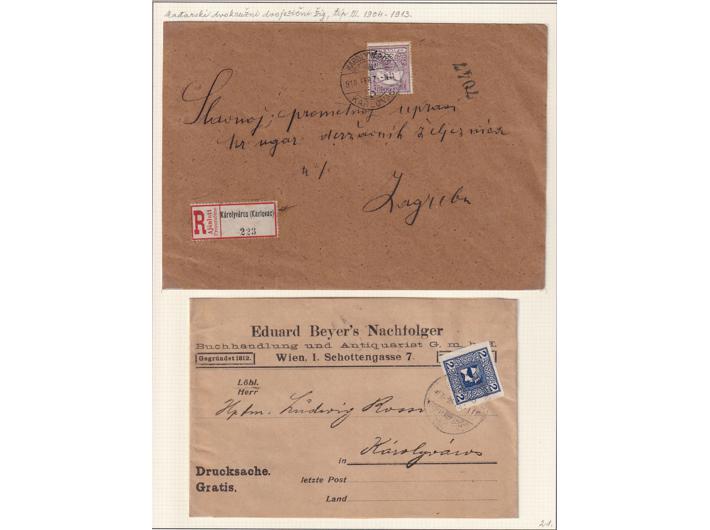 Mađarski dvokružni dvojezični žig, tip III. 1904-1913.
KÁROLYVÁROS
KARLOVAC
7047
Slavnoj prometnoj upravi
kr ugar deržavnih željeznica
u /.
Zagrebu
R
Ajánlott
Károlyváros (Karlovac)
223
Eduard Beyer's Nachfolger
Buchhandlung und Antiquariat G. m. b. H.
Gegründet 1812.
Wien, I. Schottengasse 7.
Löbl.
Herr
Hptm. Ludwig Ross
in Károlyváros
Drucksache.
Gratis.
letzte Post
Land
21.